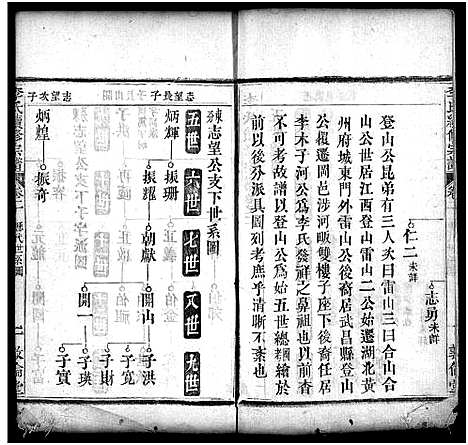 仁二未詳
志勇未詳
登山公昆弟有三人次曰雷山三曰合山合
山公世居江西登山雷山二公始遷湖北黃
州府城東門外雷山公後裔居武昌縣登山
公復遷岡邑涉河畈雙樓子座下後裔任居
李木子河公為李氏發祥之鼻祖也以前皆
不可考故譜以登山公為始五世總圖繪於
前以後分派具圖列考庶乎清晰不紊也
東志望公支下世系圖
五世
六世
七世
八世
九世
志望長子
炳輝
振珊
振耀
朝獻
開山
子洪
子寬
開一
子瑛
子賓
志望次子
炳煌
振奇
李氏續修宗譜
卷二
歷代世系圖
一
敦倫堂